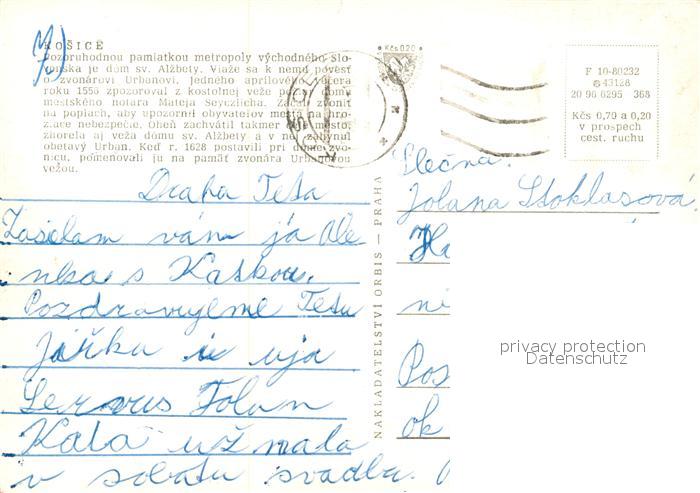 7)
KOŠICE
Pozoruhodnou pamiatkou metropoly východného Slo-
venska je dóm sv. Alžbety. Viaže sa k nemu povesť
o zvonárovi Urbanovi. Jedného aprílového večera
roku 1556 zpozoroval z kostolnej veže požiar domu
mestského notára Mateja Seyczlicha. Začal zvoniť
na poplach, aby upozornil obyvateľov mesta na hro-
ziace nebezpečie. Oheň zachvátil takmer mesto,
zhorela aj veža dómu sv. Alžbety a v nej zahynul
obetavý Urban. Keď r. 1628 postavili pri dóme zvo-
nicu, pomenovali ju na pamäť zvonára Urbanovou
vežou.
Draha Teta
Zasielam vám já Ale
nka s Katkou.
Pozdravujeme Tetu
Jarku i uja
Servus Jolan
Kata už mala
v sobatu svadbu.
NAKLADATELSTVÍ ORBIS — PRAHA
Kčs 0,20
F 10-80232
43128
20 96 6295 368
Kčs 0,70 a 0,20
v prospech
cest. ruchu
Slečna
Jolana Stoklasová
Ha
ni
Pos
ok
privacy protection
Datenschutz